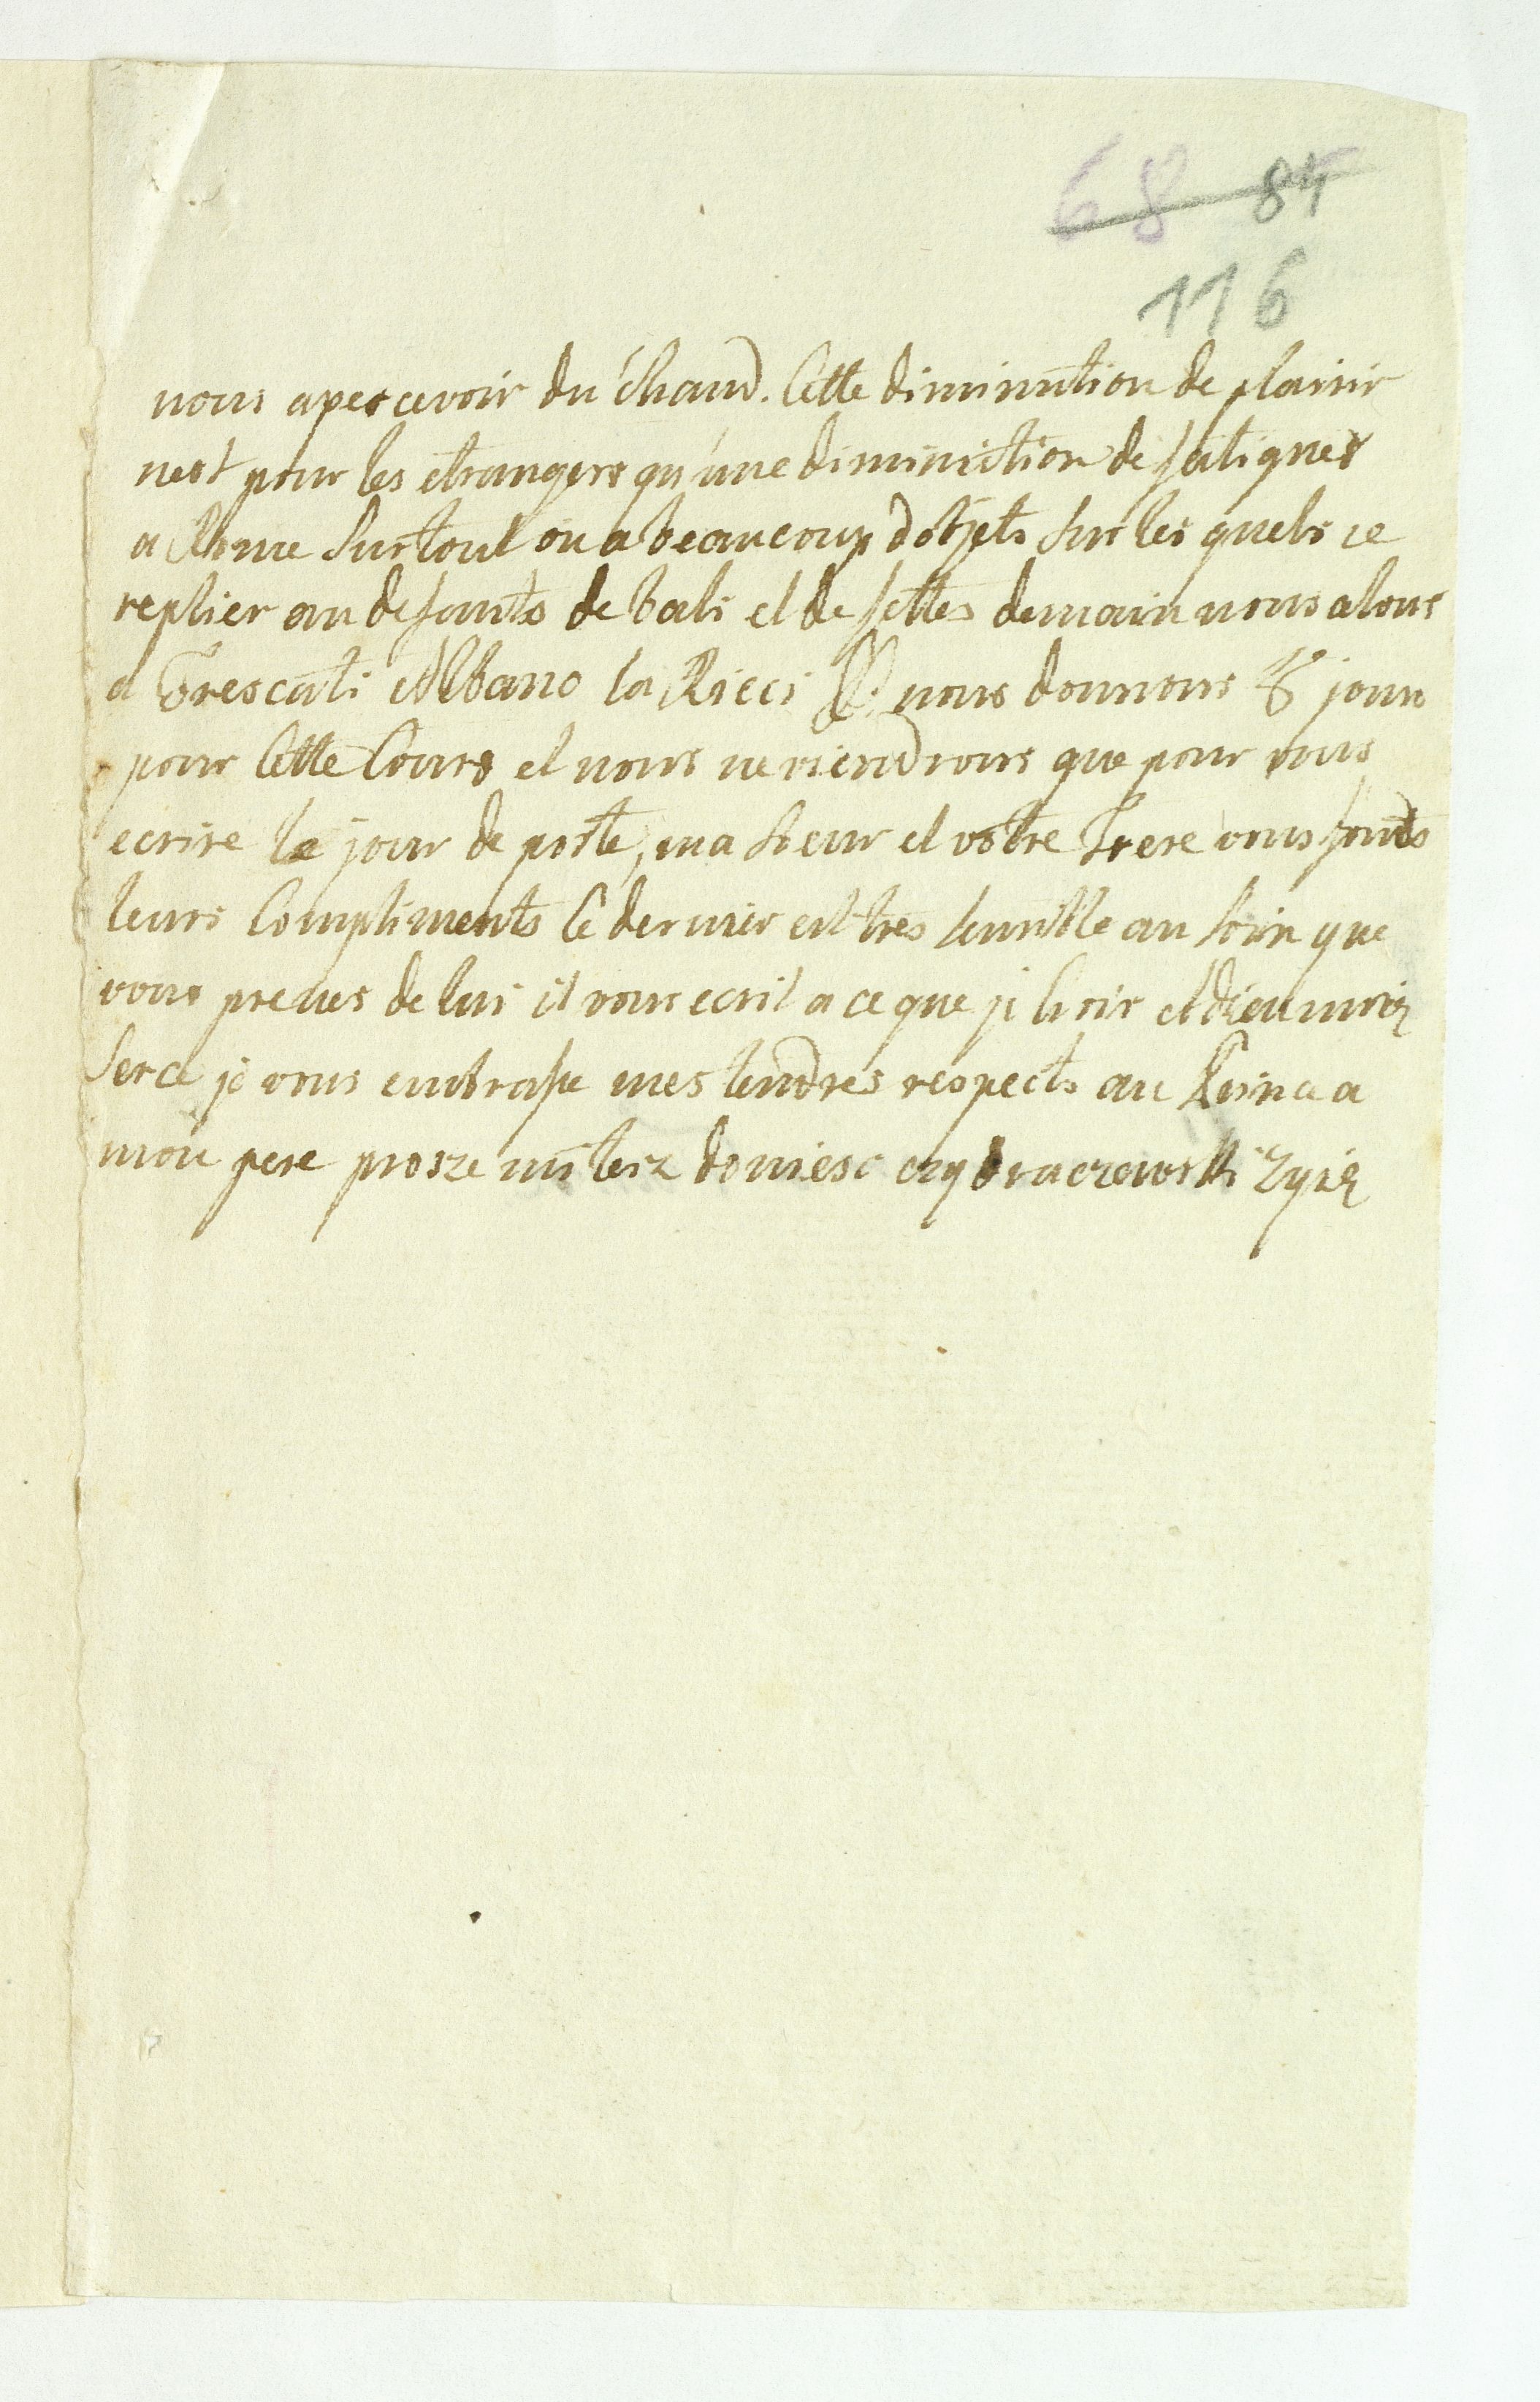 68 84
116
nous apercevoir du Chaud. Cette diminution de plaisir
nest pour les etrangers qu'une diminution de fatigues
a Rome Surtout on a beaucoup dobjets Sur les quels se
replier au defauts de bals et de fettes demain nous alons
a Frescati Albano la Ricci nous donnons jours
pour Cette Cours et nous ne viendrons que pour vous
ecrire le jour de poste, ma Soeur et votre Frere vous fonts
leurs Compliments Ce dernier est tres sensible au Soin que
vous prenes de lui il vous ecrit a ce que je Crois et dieu moie
Serce je vous embrasse mes tendres respects au Prince a
mon pere prosze mi tesz doniesc czy zyie